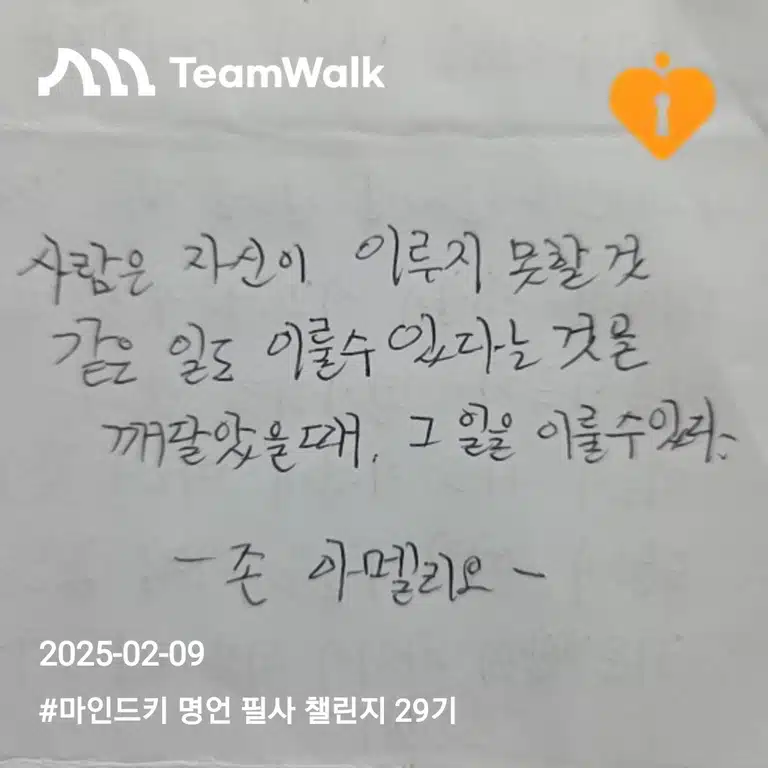 TeamWalk
사람은 자신이 이루지 못할 것
같은 일도 이룰수 있다는 것을
깨달았을때, 그 일을 이룰수있다.
- 존 아멜리오 -
2025-02-09
#마인드키 명언 필사 챌린지 29기